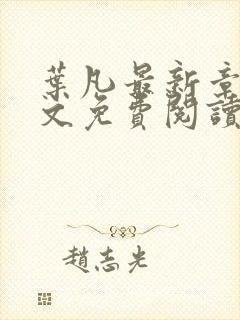 葉凡最新章
文免費閱讀
趙志光